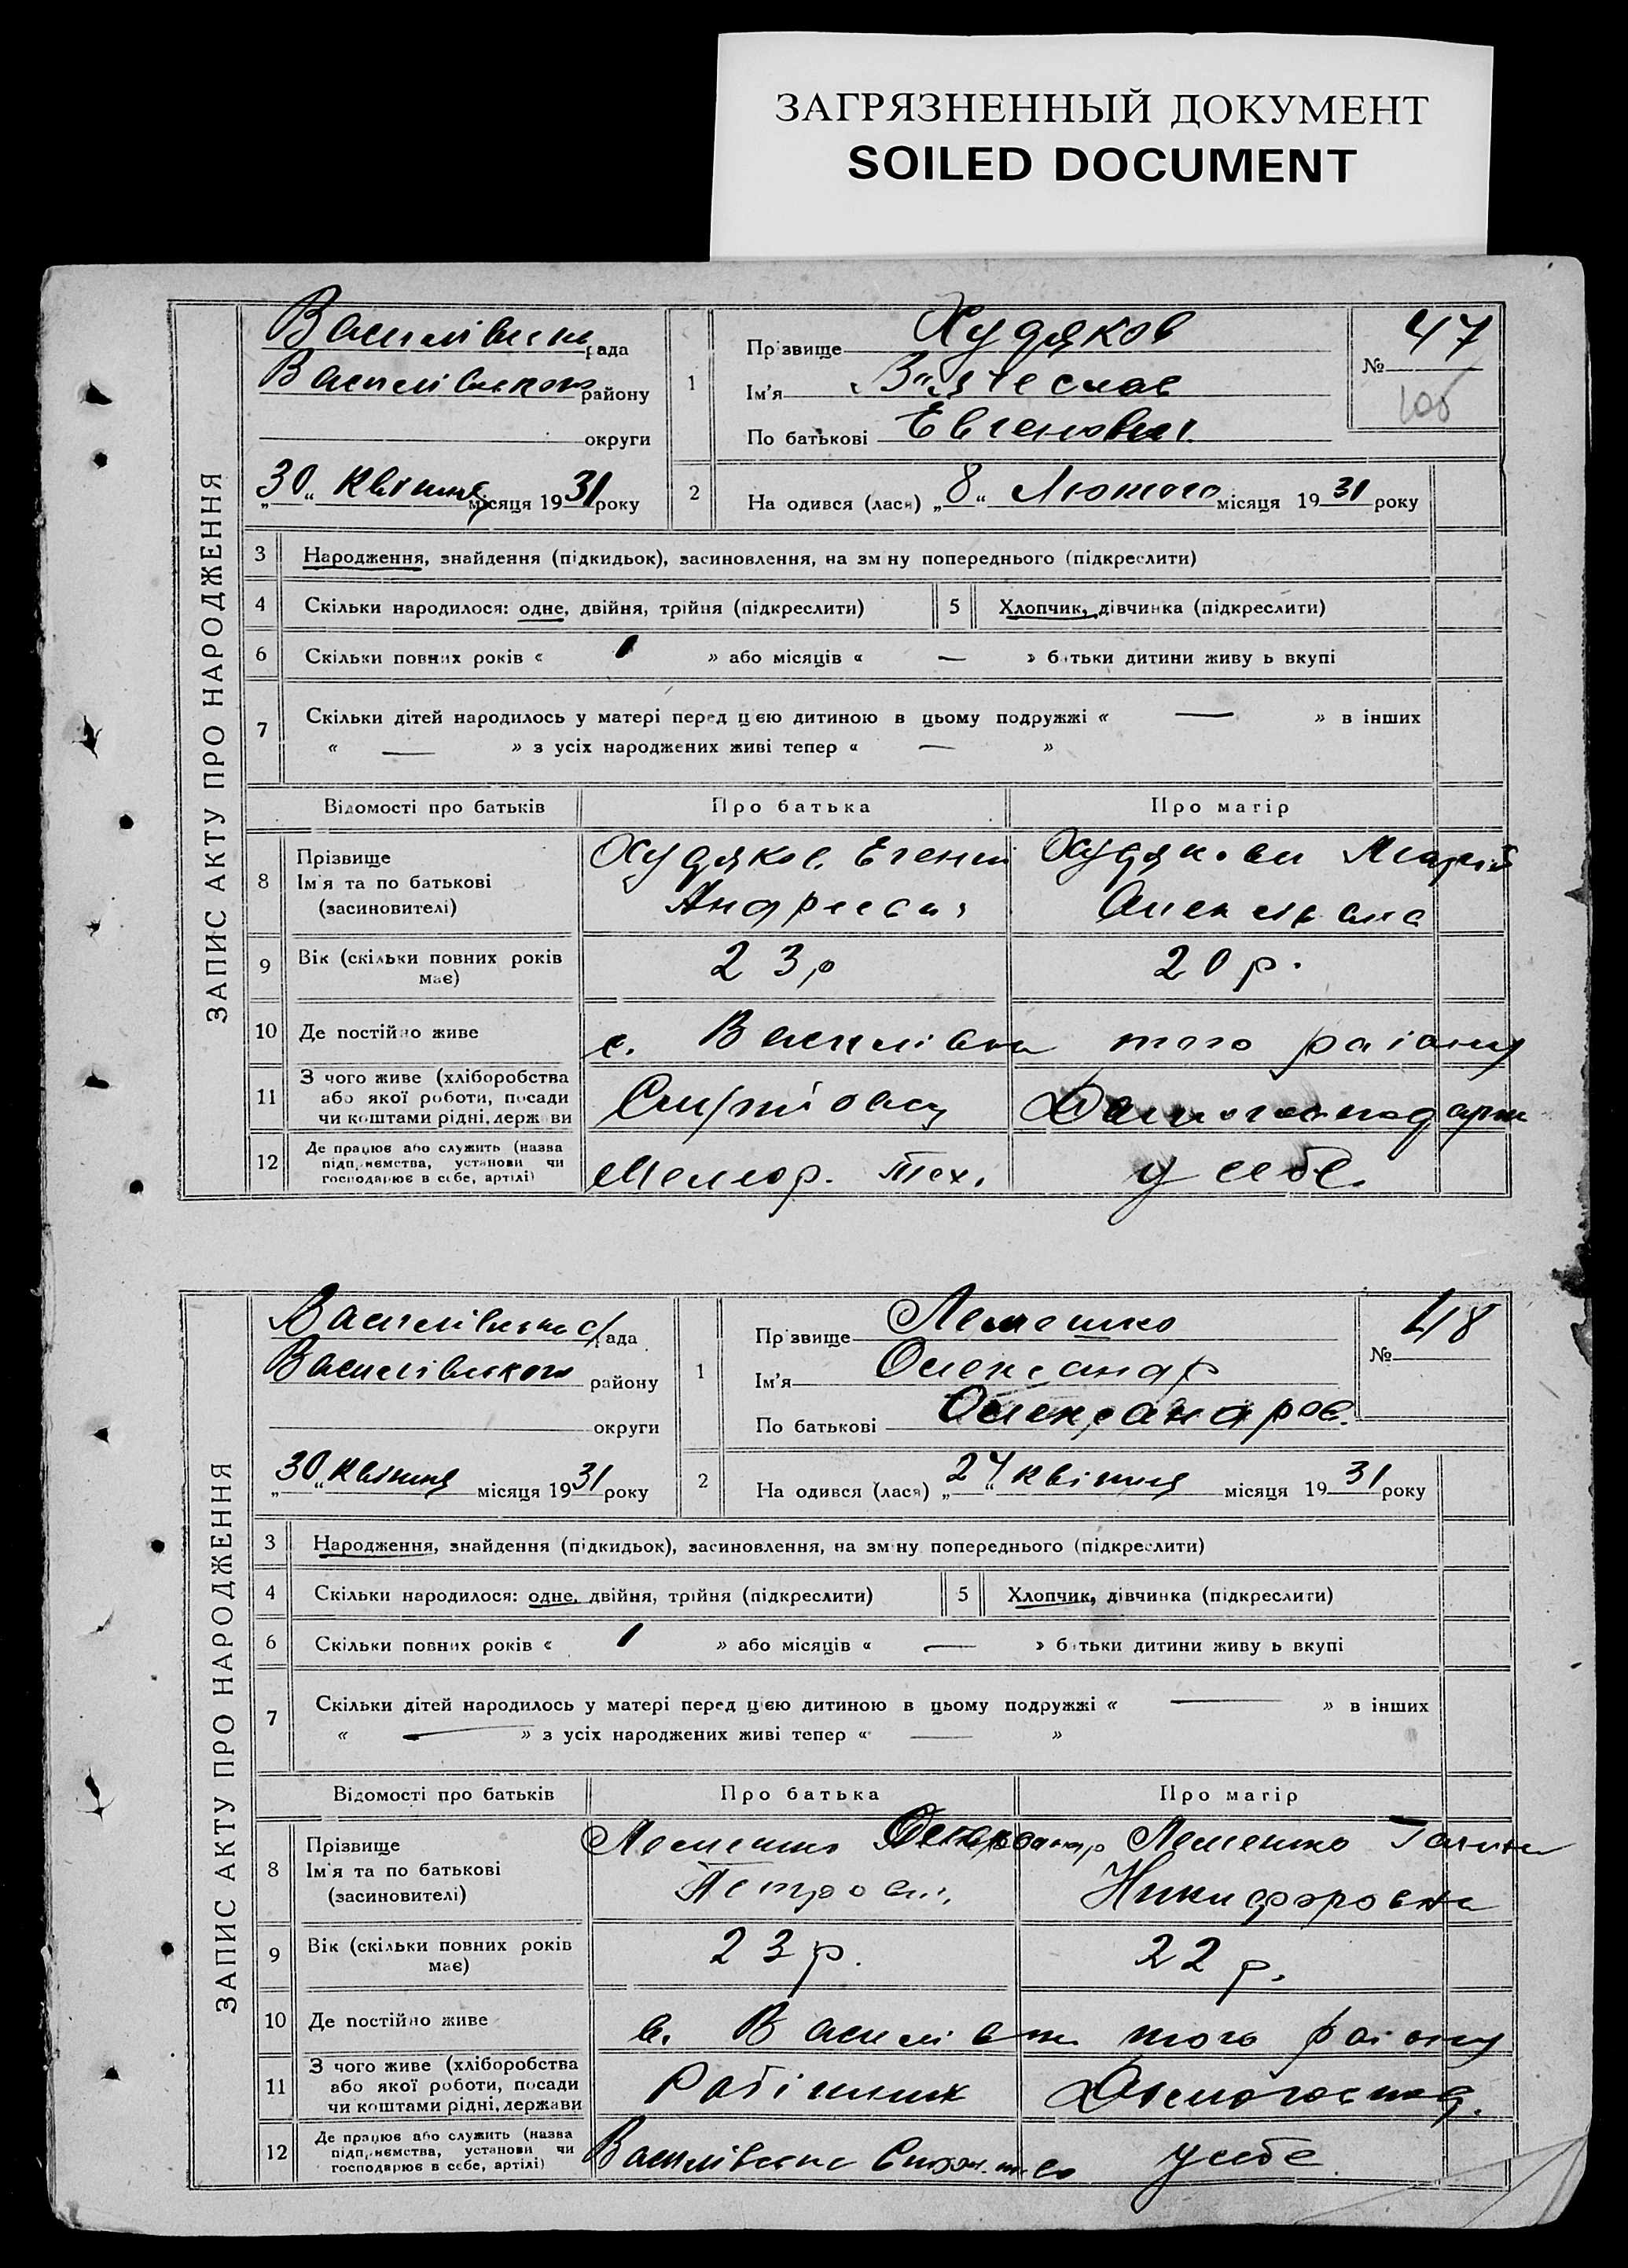 ЗАГРЯЗНЕННЫЙ ДОКУМЕНТ
SOILED DOCUMENT
ЗАПИС АКТУ ПРО НАРОДЖЕННЯ
рада
Василівського району
округи
„30“ квітня місяця 1931 року
1
Прізвище Худяков
Ім'я Вячеслав
По батькові Евгенович
№ 47
2
На одився (лася) „8“ Лютого місяця 1931 року
3 Народження, знайдення (підкидьок), засиновлення, на зміну попереднього (підкреслити)
4 Скільки народилося: одне, двійня, трійня (підкреслити)
5 Хлопчик, дівчинка (підкреслити)
6 Скільки повних років « 1 » або місяців « — » батьки дитини живу ь вкупі
7 Скільки дітей народилось у матері перед цією дитиною в цьому подружжі « — » в інших
« — » з усіх народжених живі тепер « — »
Відомості про батьків Про батька Про матір
8 Прізвище
Ім'я та по батькові
(засиновителі)
Худяков Егений
Худякови Марія
9 Вік (скільки повних років
має)
23 р
20 р.
10 Де постійно живе
с. Василівка того району
11 З чого живе (хліборобства
або якої роботи, посади
чи коштами рідні, держави
Домогосподарк
12 Де працює або служить (назва
підприємства, установи чи
господарює в себе, артілі)
Мелиор. Тех.
у себе.
ЗАПИС АКТУ ПРО НАРОДЖЕННЯ
Василівська с/рада
Василівського району
округи
„30“ квітня місяця 1931 року
1
Прізвище Лемешко
Ім'я Олександр
По батькові Олександров.
№ 48
2
На одився (лася) „24“ квітня місяця 1931 року
3 Народження, знайдення (підкидьок), засиновлення, на зміну попереднього (підкреслити)
4 Скільки народилося: одне, двійня, трійня (підкреслити)
5 Хлопчик, дівчинка (підкреслити)
6 Скільки повних років « 1 » або місяців « — » батьки дитини живу ь вкупі
7 Скільки дітей народилось у матері перед цією дитиною в цьому подружжі « — » в інших
« — » з усіх народжених живі тепер « — »
Відомості про батьків Про батька Про матір
8 Прізвище
Ім'я та по батькові
(засиновителі)
Лемешко Олександр
Петрович
Лемешко Галина
Никифоровна
9 Вік (скільки повних років
має)
23 р.
22 р.
10 Де постійно живе
с. Василівка того району
11 З чого живе (хліборобства
або якої роботи, посади
чи коштами рідні, держави
Робітник
Домогоспод.
12 Де працює або служить (назва
підприємства, установи чи
господарює в себе, артілі)
Василівське
у себе